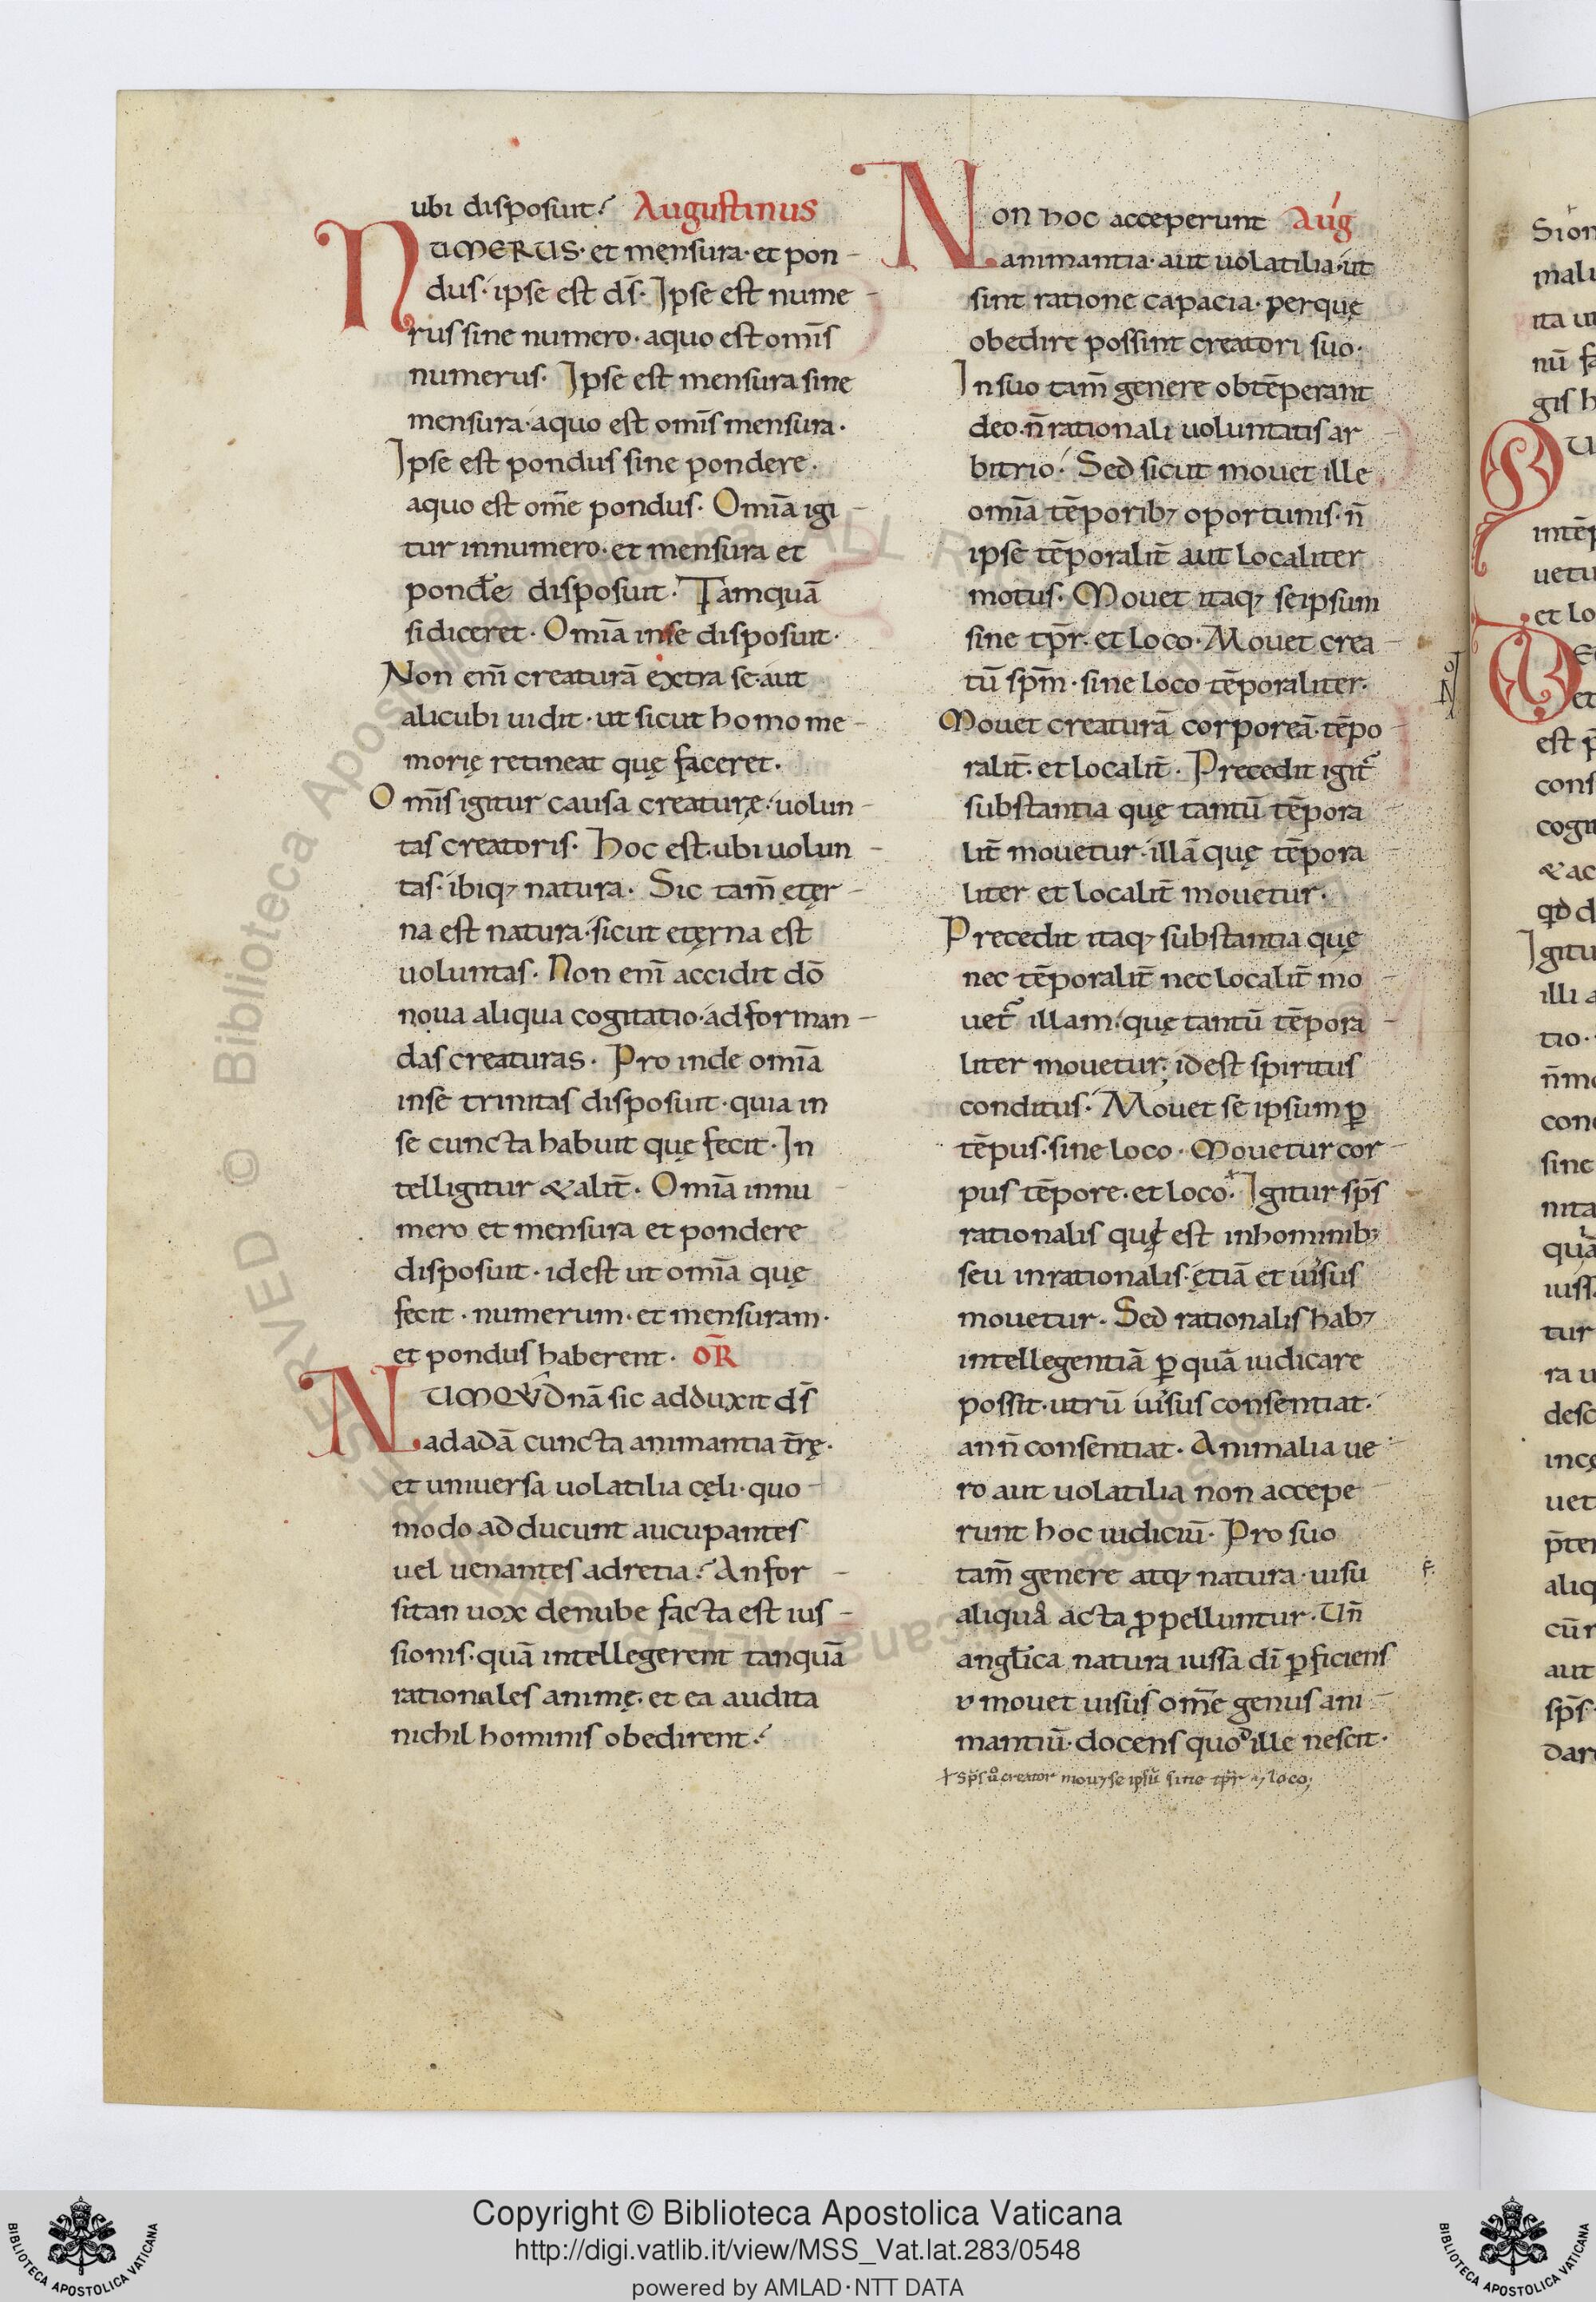 ubi disposuit? Augustinus
NUMERUS· et mensura· et pon-
dus· ipse est dš· Ipse est nume-
rus sine numero· aquo est omīs
numerus· Ipse est mensura sine
mensura· aquo est omīs mensura·
Ipse est pondus sine pondere·
aquo est om̄e pondus· Omīa igi-
tur innumero· et mensura et
pondēe disposuit· Tamquā
si diceret· Omīa inse disposuit·
Non enī creaturā extra se· aut
alicubi uidit· ut sicut homo me-
morię retineat quę faceret·
Omīs igitur causa creaturę· uolun-
tas creatoris· Hoc est· ubi uolun-
tas· ibiq; natura· Sic tam̄ etęr-
na est natura· sicut etęrna est
uoluntas· Non enī accidit dō
noua aliqua cogitatio· ad forman-
das creaturas· Pro inde omīa
inse trinitas disposuit· quia in
se cuncta habuit quę fecit· In
telligitur & alit̄· Omīa innu-
mero et mensura et pondere
disposuit· idest ut omīa quę
fecit· numerum· et mensuram·
et pondus haberent· OR̄
NUMQVID nā sic adduxit dš
ad adā cuncta animantia t̄rę·
et uniuersa uolatilia cęli· quo-
modo adducunt aucupantes
uel uenantes adretia? An for-
sitan uox denube facta est ius-
sionis· quā intellegerent tanquā
rationales animę· et ea audita
nichil hominis obedirent?
Non hoc acceperunt Aug
animantia· aut uolatilia· ut
sint ratione capacia· perquę
obedire possint creatori suo·
In suo tam̄ genere obtēperant
deo· n̄ rationali uoluntatis ar
bitrio· Sed sicut mouet ille
omīa tēporib; oportunis· n̄
ipse tēporalit̄ aut localiter
motus· Mouet itaq; seipsum
sine tp̄r· et loco· Mouet crea-
tū sp̄m· sine loco tēporaliter·
Mouet creaturā corporeā· tēpo-
ralit̄· et localit̄· Precedit igit̄
substantia quę tantū tēpora
lit̄ mouetur· illā quę tēpora
liter et localit̄ mouetur·
Precedit itaq; substantia quę
nec tēporalit̄ nec localit̄ mo-
uet̄ illam· quę tantū tēpora-
liter mouetur; idest spiritus
conditus· Mouet se ipsum ꝑ
tēpus· sine loco· Mouetur cor-
pus tēpore· et loco· Igitur sp̄s
rationalis quę est inhominib;
seu inrationalis· ętiā et uisus
mouetur· Sed rationalis hab;
intellegentiā ꝑ quā iudicare
possit· utrū uisus consentiat·
an n̄ consentiat· Animalia ue-
ro aut uolatilia non accepe-
runt hoc iudiciū· Pro suo
tam̄ genere atq; natura· uisu
aliquā acta ꝓpelluntur· Un̄
angl̄ica natura iussa dī ꝑficiens
mouet uisus om̄e genus ani-
mantiū· docens quo ille nescit·
sp̄s ů creator mou; se ipsū sine tp̄r ⁊ loco;
Copyright © Biblioteca Apostolica Vaticana
http://digi.vatlib.it/view/MSS_Vat.lat.283/0548
powered by AMLAD·NTT DATA
BIBLIOTECA APOSTOLICA VATICANA
BIBLIOTECA APOSTOLICA VATICANA